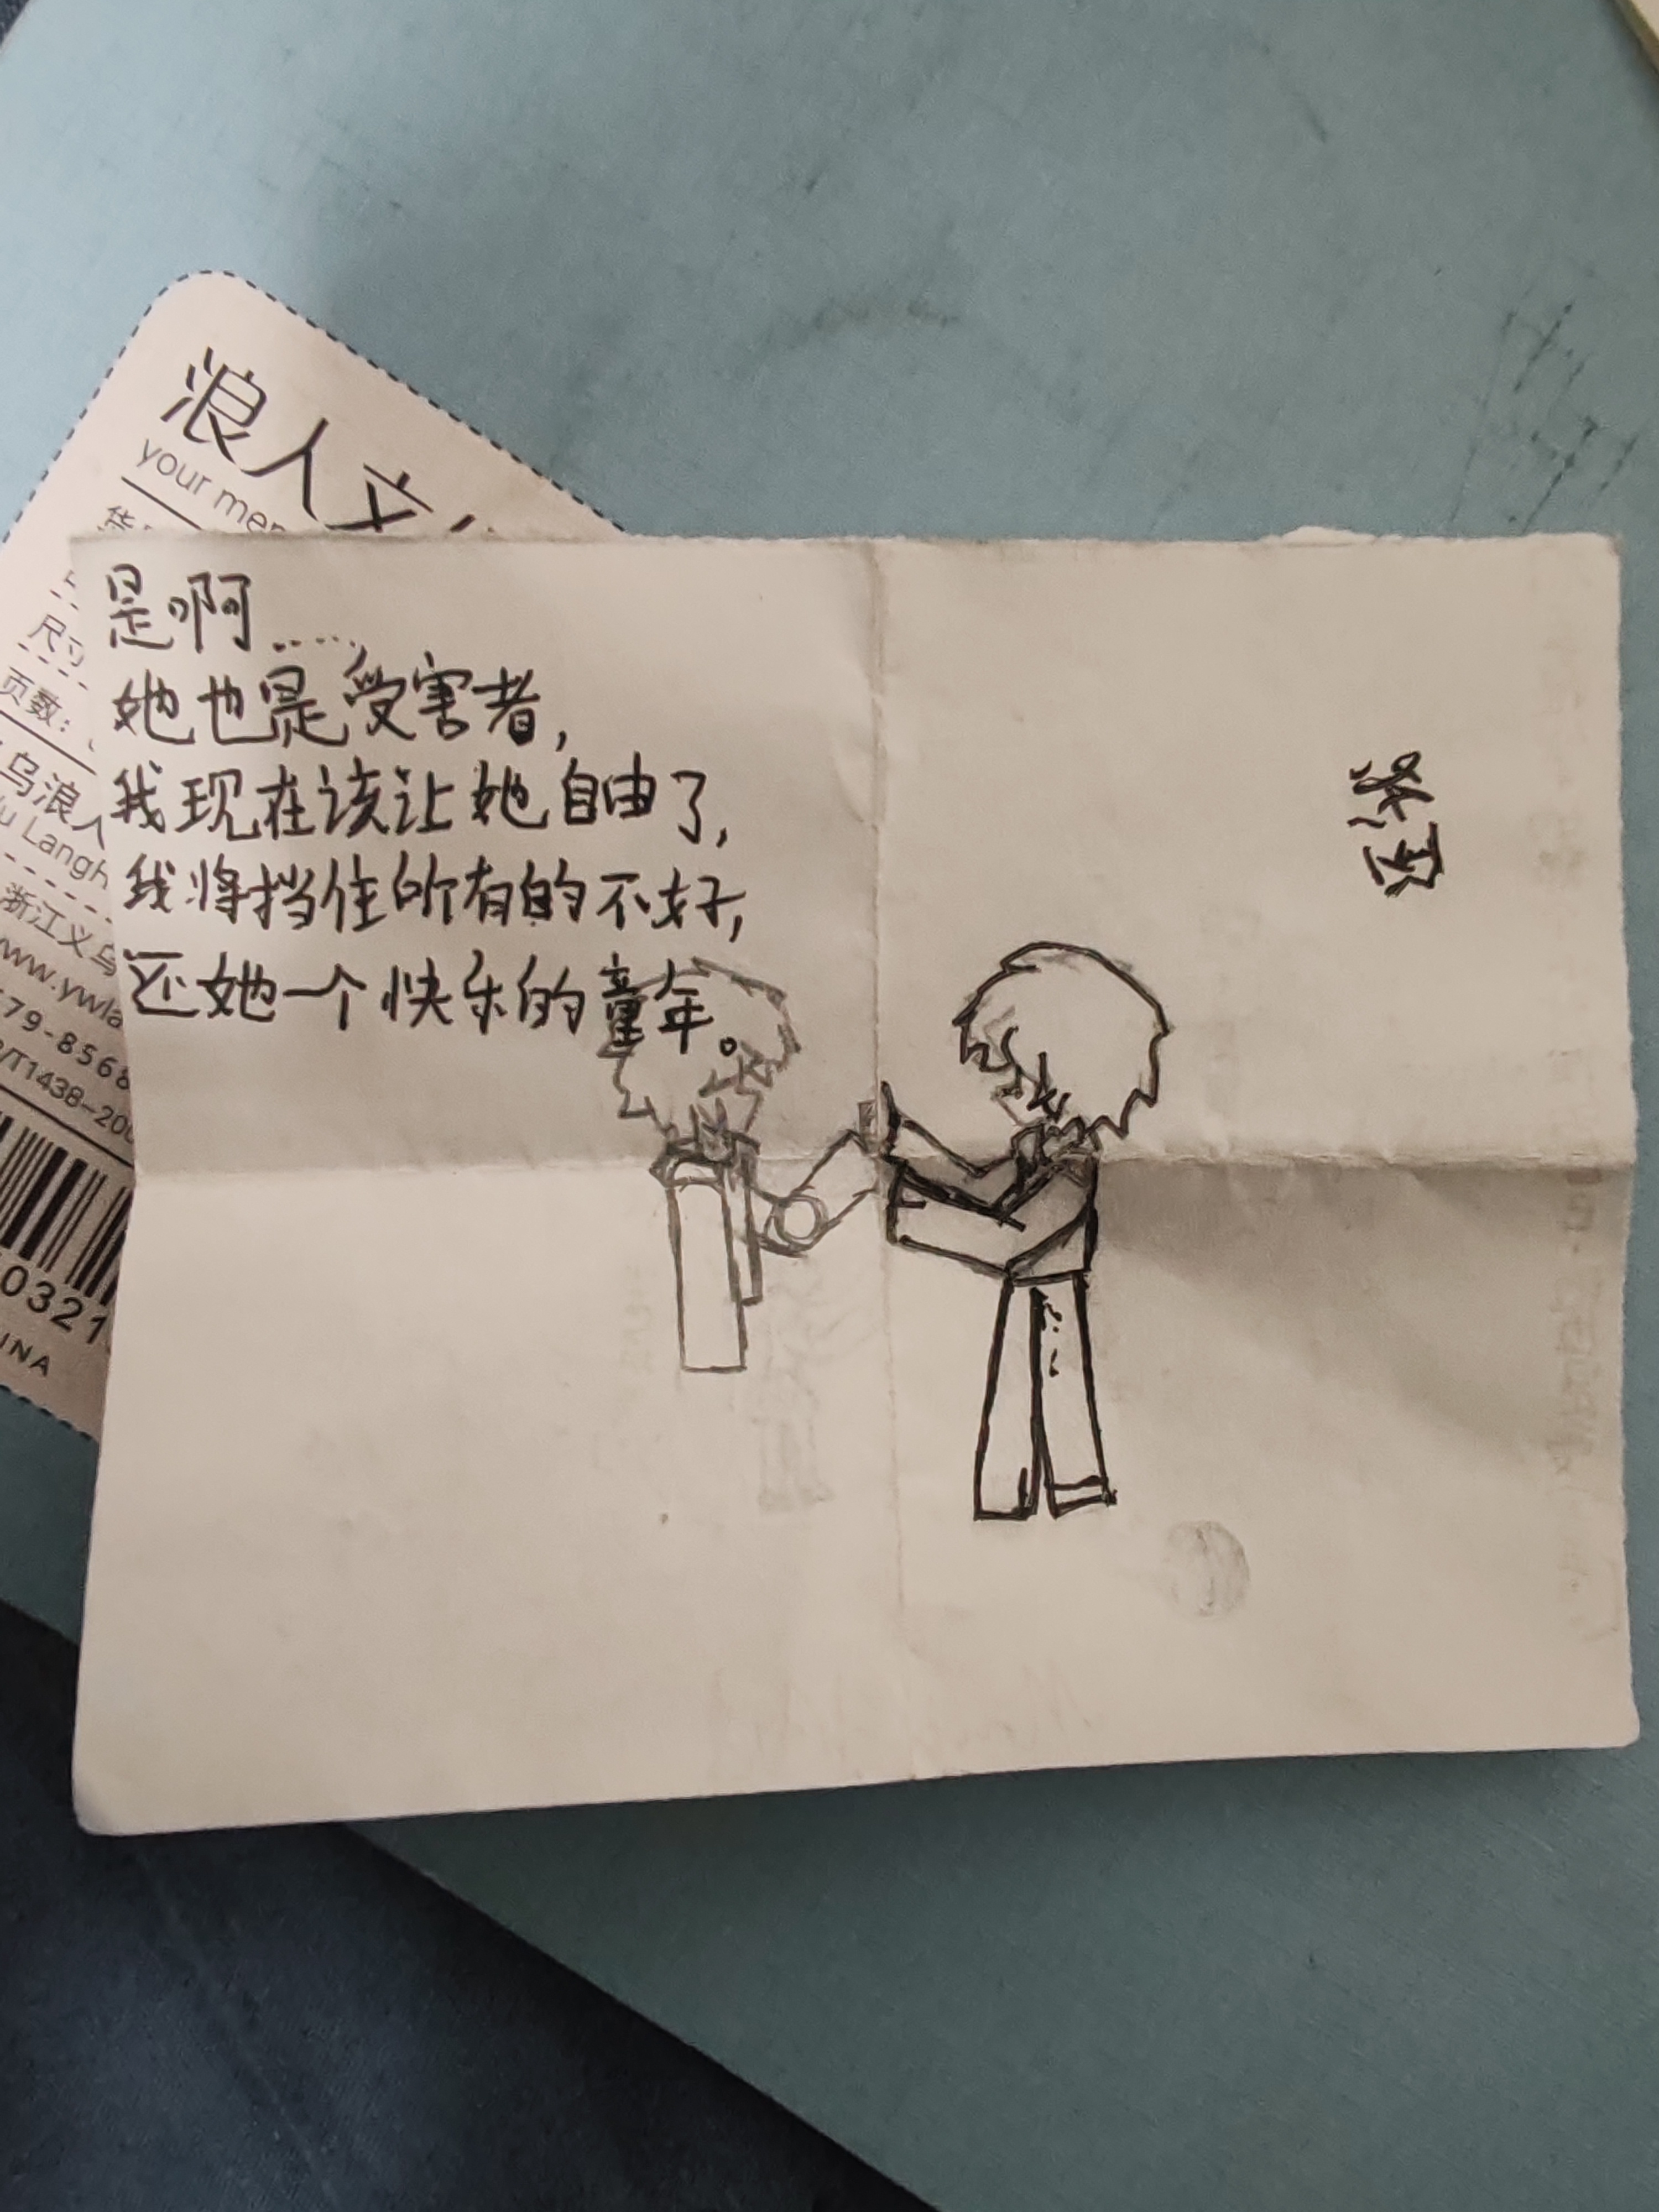 浪人文
your mer
尺寸
页数：
乌浪人
u Langh
浙江义乌
www.ywla
579-8568
/T1438-200
0321
INA
是啊……
她也是受害者，
我现在该让她自由了，
我将挡住所有的不好，
还她一个快乐的童年。